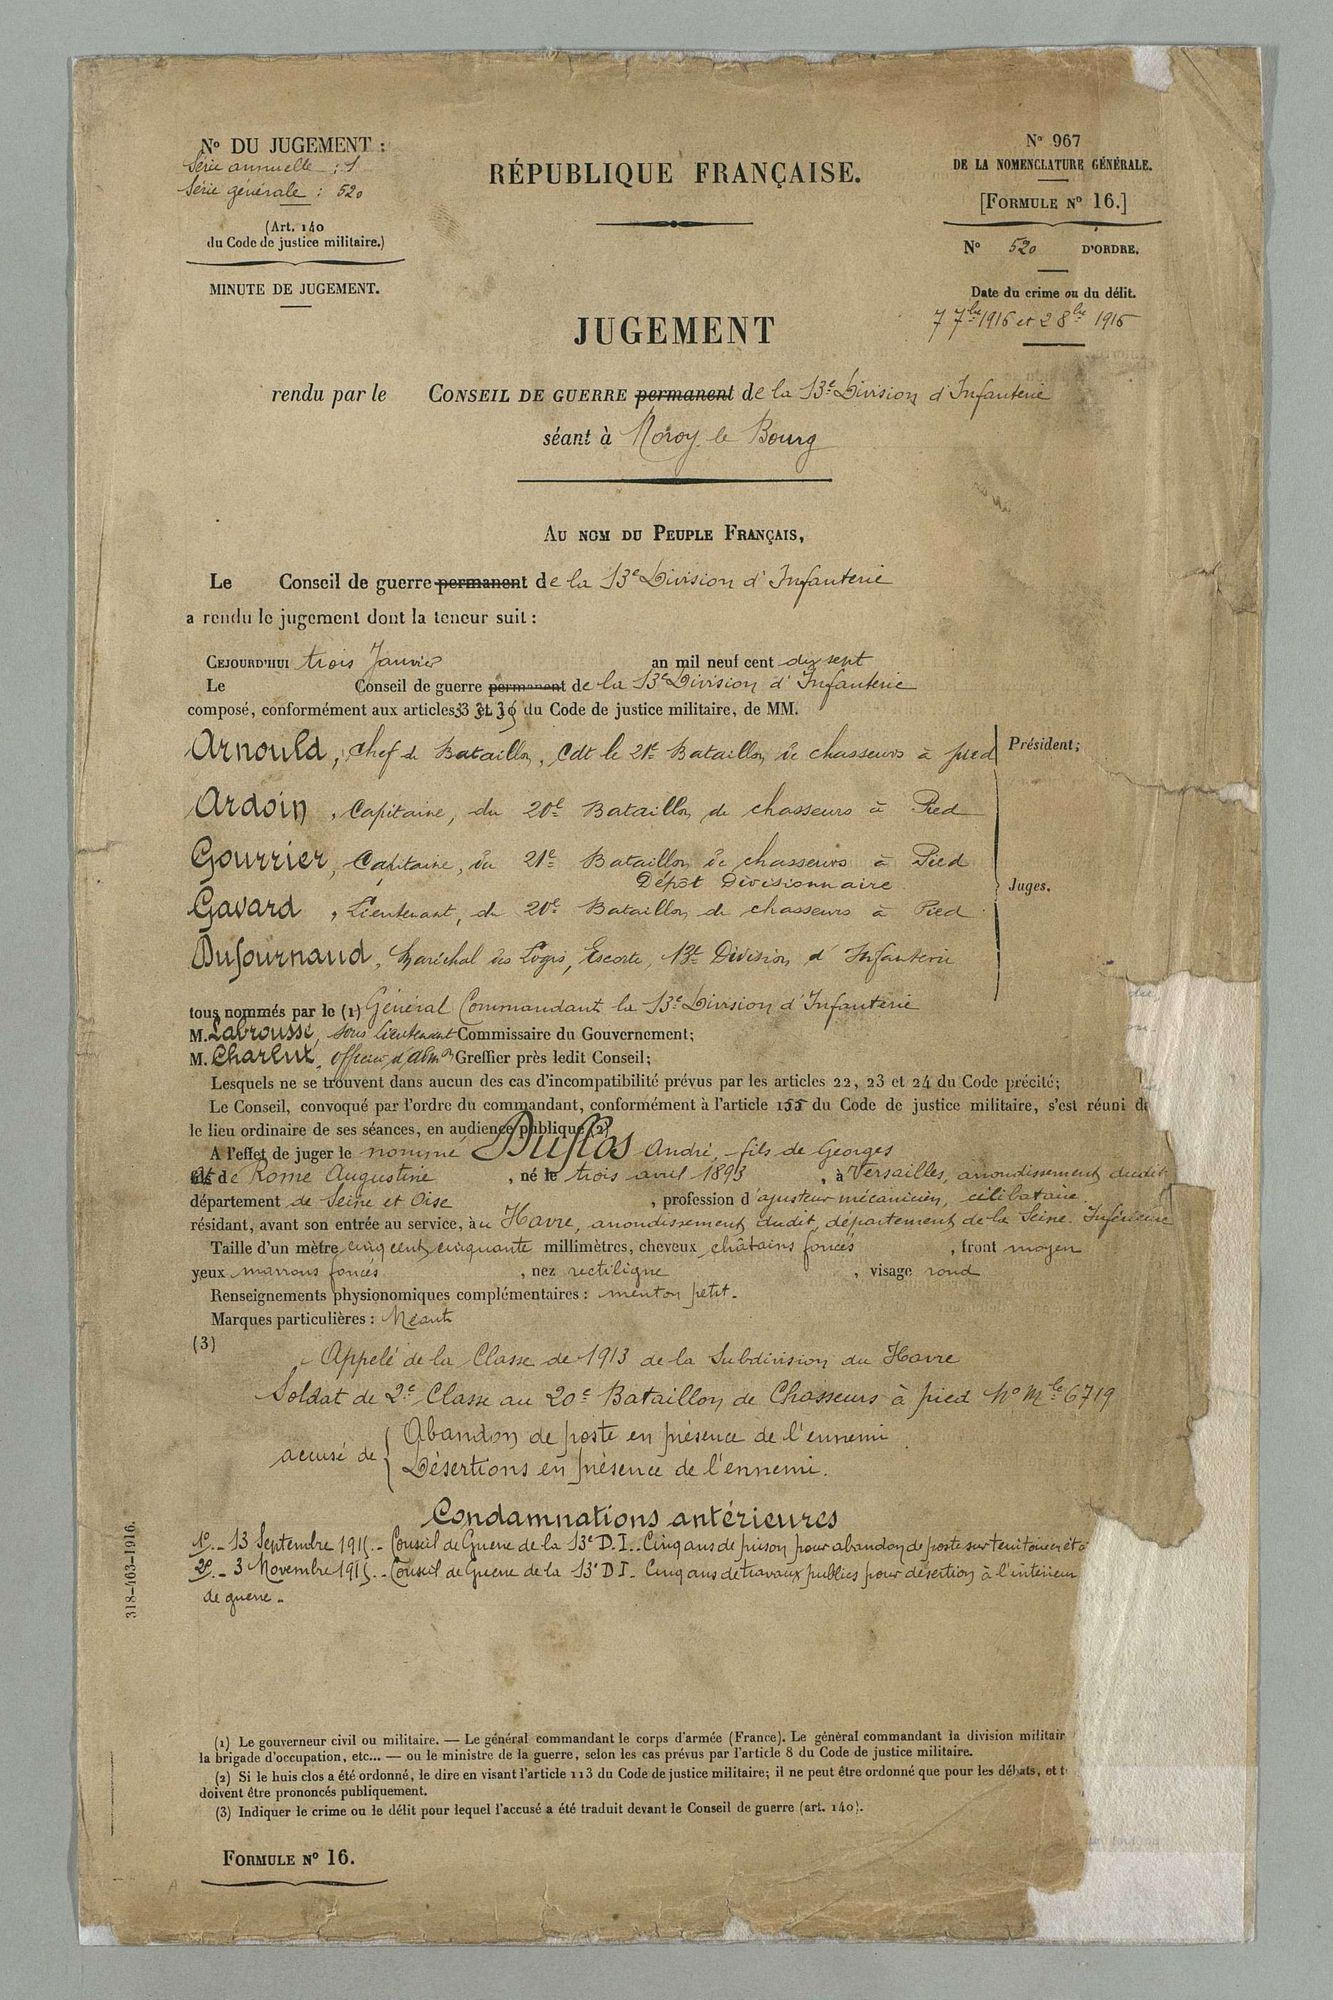 No DU JUGEMENT :
Série annuelle : 1
Série générale : 520
(Art. 140
du Code de justice militaire.)
MINUTE DE JUGEMENT.
RÉPUBLIQUE FRANÇAISE.
No 967
DE LA NOMENCLATURE GÉNÉRALE.
[FORMULE No 16.]
No 520 D'ORDRE.
Date du crime ou du délit.
7 7bre 1916 et 2 8bre 1916
JUGEMENT
rendu par le CONSEIL DE GUERRE permanent de la 13e Division d'Infanterie
séant à Noroy le Bourg
AU NOM DU PEUPLE FRANÇAIS,
Le Conseil de guerre permanent de la 13e Division d'Infanterie
a rendu le jugement dont la teneur suit :
CEJOURD'HUI trois Janvier an mil neuf cent dix sept
Le Conseil de guerre permanent de la 13e Division d'Infanterie
composé, conformément aux articles 33 du Code de justice militaire, de MM.
Arnould, Chef de Bataillon, Cdt le 21e Bataillon de chasseurs à pied Président;
Ardoin, Capitaine, du 20e Bataillon de chasseurs à Pied
Gourrier, Capitaine, du 21e Bataillon de chasseurs à Pied
Dépôt Divisionnaire
Juges.
Gavard, Lieutenant, du 20e Bataillon de chasseurs à Pied
Dufournaud, Maréchal des Logis, Escorte, 13e Division d'Infanterie
tous nommés par le (1) Général Commandant la 13e Division d'Infanterie
M. Labrousse, sous lieutenant Commissaire du Gouvernement;
M. Charlut, officier d'admon Greffier près ledit Conseil;
Lesquels ne se trouvent dans aucun des cas d'incompatibilité prévus par les articles 22, 23 et 24 du Code précité;
Le Conseil, convoqué par l'ordre du commandant, conformément à l'article 155 du Code de justice militaire, s'est réuni d
le lieu ordinaire de ses séances, en audience publique (2)
A l'effet de juger le nommé Duflos André, fils de Georges
et de Rome Augustine, né le trois avril 1893, à Versailles, arrondissement dudit
département de Seine et Oise, profession d'ajusteur mécanicien, célibataire.
résidant, avant son entrée au service, au Havre, arrondissement dudit, département de la Seine Inférieure
Taille d'un mètre cinq cent cinquante millimètres, cheveux châtains foncés, front moyen
yeux marrons foncés, nez rectiligne, visage rond
Renseignements physionomiques complémentaires : menton petit.
Marques particulières : Néant
(3)
Appelé de la Classe de 1913 de la Subdivision du Havre
Soldat de 2e Classe au 20e Bataillon de Chasseurs à pied No Mle 6719
accusé de { Abandon de poste en présence de l'ennemi
Désertions en présence de l'ennemi.
Condamnations antérieures
1o.- 13 Septembre 1915.- Conseil de Guerre de la 13e D.I.- Cinq ans de prison pour abandon de poste sur territoire en ét
2o.- 3 Novembre 1915.- Conseil de Guerre de la 13e D I - Cinq ans de travaux publics pour désertion à l'intérieur
de guerre.
318-463-1916.
(1) Le gouverneur civil ou militaire. — Le général commandant le corps d'armée (France). Le général commandant la division militair
la brigade d'occupation, etc... — ou le ministre de la guerre, selon les cas prévus par l'article 8 du Code de justice militaire.
(2) Si le huis clos a été ordonné, le dire en visant l'article 113 du Code de justice militaire; il ne peut être ordonné que pour les débats, et
doivent être prononcés publiquement.
(3) Indiquer le crime ou le délit pour lequel l'accusé a été traduit devant le Conseil de guerre (art. 140).
FORMULE No 16.